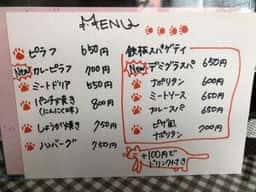 MENU
ピラフ 650円
New カレーピラフ 700円
ミートドリア 650円
パンチャ焼き 800円
(にんにく味)
しょうが焼き 750円
ハンバーグ 750円
鉄板スパゲティ
New デミグラスパ 650円
ナポリタン 600円
ミートソース 650円
カレースパ 650円
ピザ風
ナポリタン 700円
+100円で
ドリンク付き